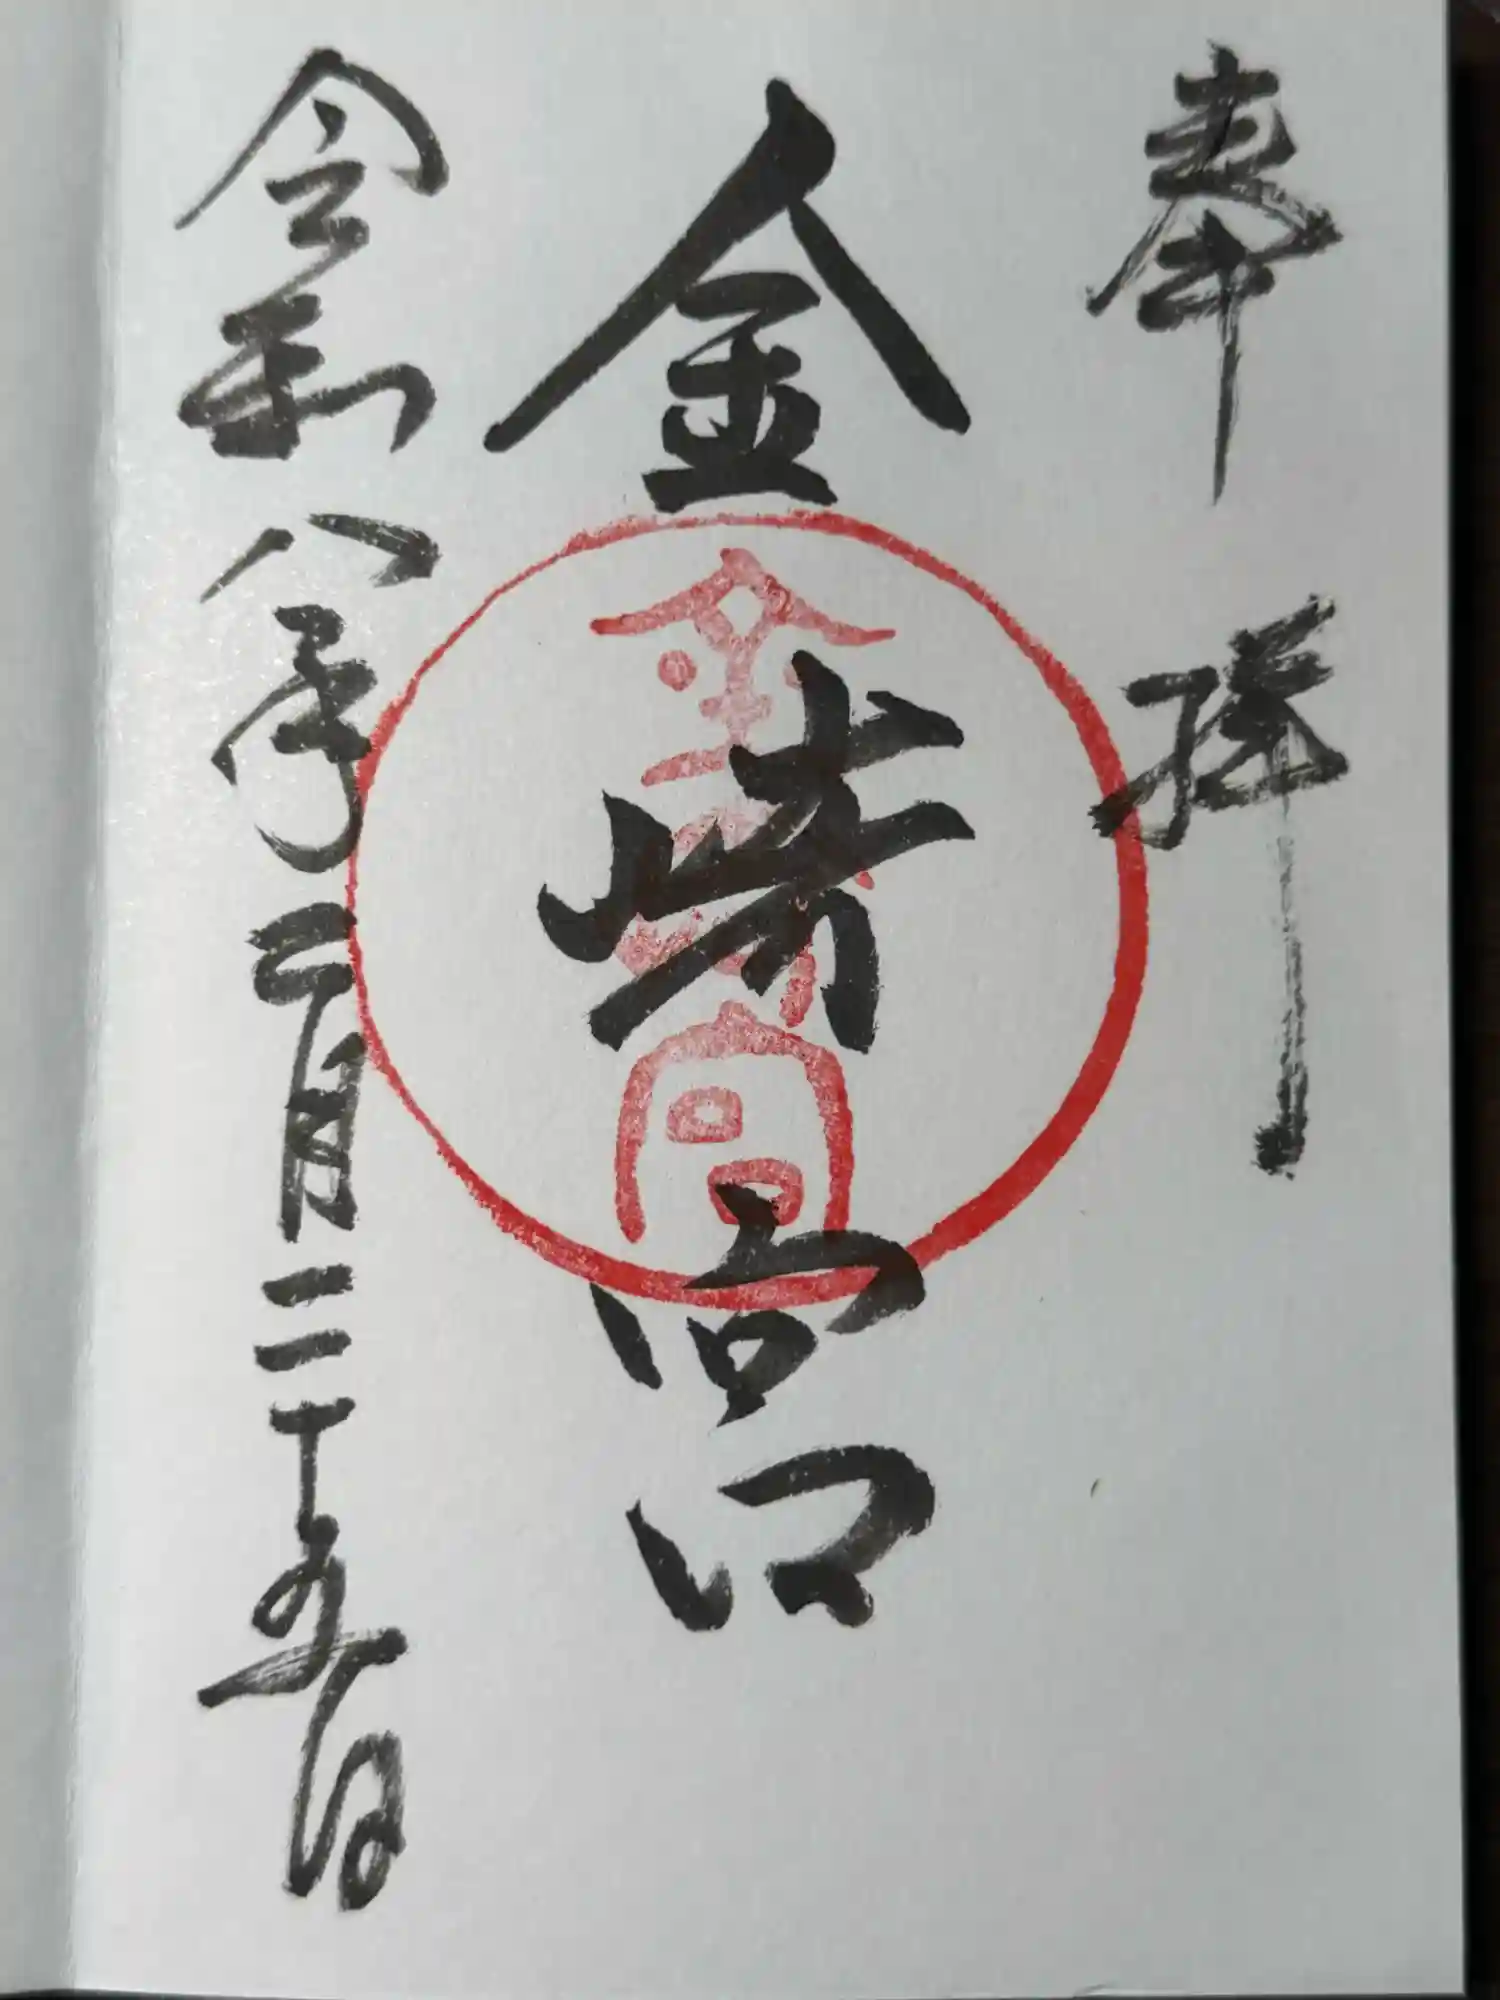 奉拝
金崎宮
金崎宮
令和八年二月二十五日